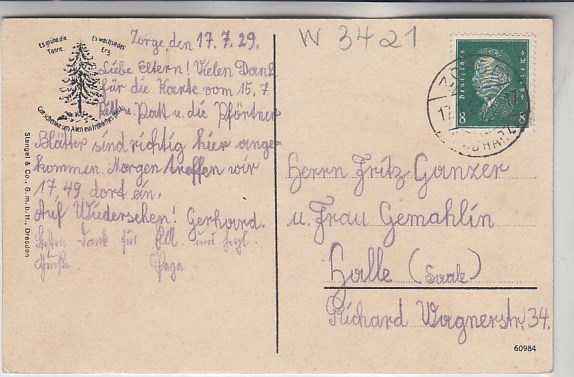 Es grüne die
Tanne,
Es wachse das
Erz
Gott schenke uns Allen ein fröhliches Herz
Zorge, den 17.7.29.
Liebe Eltern! Vielen Dank
für die Karte vom 15.7
Platt u. die Pförtner
Blätter sind richtig hier ange-
kommen. Morgen treffen wir
17,49 dort ein.
Auf Wiedersehen! Gerhard.
Besten Dank für
und hrzl.
Grüße.
W 3421
Deutsches Reich
8 8
Herrn Fritz Ganzer
u. Frau Gemahlin
Halle (Saale)
Richard Wagnerstr. 34.
Stengel & Co., G. m. b. H., Dresden
60984